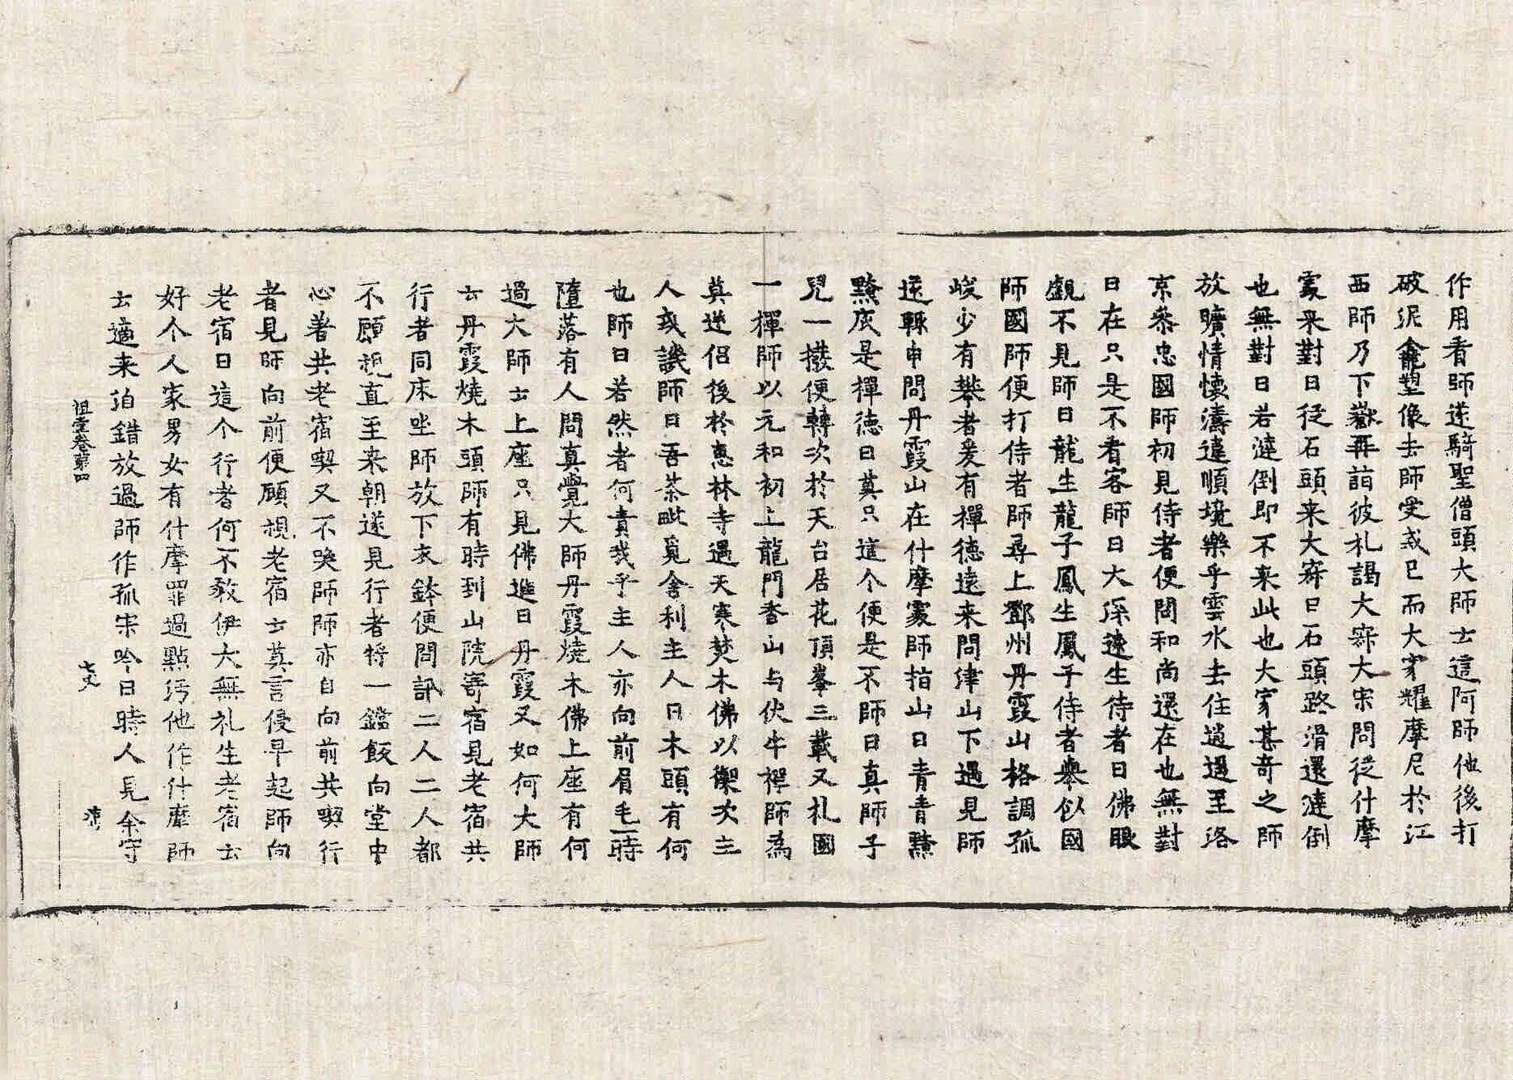 作用看師遂騎聖僧頭大師士這阿師他後打
破泥龕塑像去師受戒已而大寂耀摩尼於江
西師乃下嶽再詣彼礼謁大寂大寂問從什摩
處来對曰從石頭来大寂曰石頭路滑還澾倒
也無對曰若澾倒即不来此也大寂甚奇之師
放曠情懷濤違順境樂乎雲水去住逍遥至洛
京叅忠國師初見侍者便問和尚還在也無對
曰在只是不看客師曰大深遠生侍者曰佛眼
覷不見師曰龍生龍子鳳生鳳子侍者舉似國
師國師便打侍者師尋上鄧州丹霞山格調孤
峻少有攀者爰有禪德遠来問津山下遇見師
遂輙申問丹霞山在什摩處師指山曰青青黤
黤底是禪德曰莫只這个便是不師曰真師子
兒一撥便轉次於天台居花頂峯三載又礼國
一禪師以元和初上龍門香山与伏牛禪師為
莫逆侶後於惠林寺遇天寒焚木佛以禦次主
人或譏師曰吾荼毗覓舍利主人曰木頭有何
也師曰若然者何責我乎主人亦向前眉毛一時
墮落有人問真覺大師丹霞燒木佛上座有何
過大師士上座只見佛進曰丹霞又如何大師
士丹霞燒木頭師有時到山院寄宿見老宿共
行者同床坐師放下衣鉢便問訊二人二人都
不顧視直至来朝遂見行者将一鐺飯向堂中
心著共老宿喫又不喚師師亦自向前共喫行
者見師向前便顧視老宿士莫言侵早起師向
老宿曰這个行者何不教伊大無礼生老宿士
好个人家男女有什摩罪過點汚他作什摩師
士適来洎錯放過師作孤寂吟曰時人見余守
祖堂卷第四
七丈